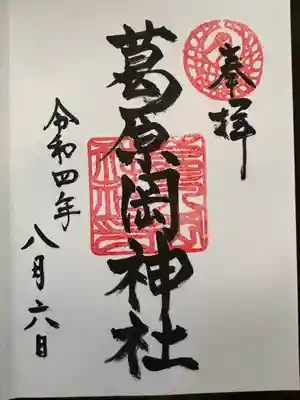 奉拝
葛原岡神社
令和四年
八月六日